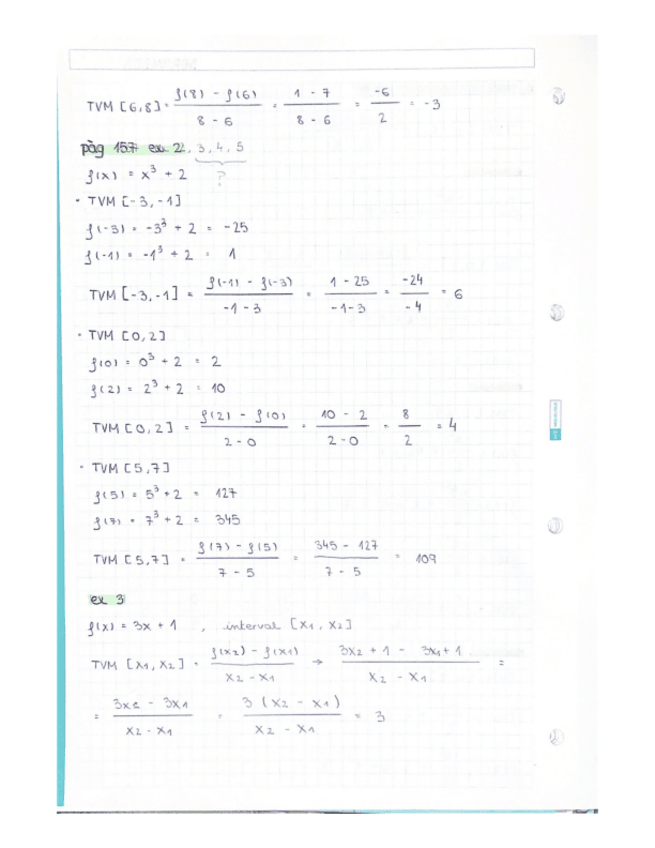 TVM [6,8] = f(8) - f(6) / 8 - 6 = 1 - 7 / 8 - 6 = -6 / 2 = -3
pàg 157 ex 2, 3, 4, 5
f(x) = x³ + 2 ?
· TVM [-3, -1]
f(-3) = -3³ + 2 = -25
f(-1) = -1³ + 2 = 1
TVM [-3, -1] = f(-1) - f(-3) / -1 - 3 = 1 - 25 / -1 - 3 = -24 / -4 = 6
· TVM [0, 2]
f(0) = 0³ + 2 = 2
f(2) = 2³ + 2 = 10
TVM [0, 2] = f(2) - f(0) / 2 - 0 = 10 - 2 / 2 - 0 = 8 / 2 = 4
· TVM [5, 7]
f(5) = 5³ + 2 = 127
f(7) = 7³ + 2 = 345
TVM [5, 7] = f(7) - f(5) / 7 - 5 = 345 - 127 / 7 - 5 = 109
ex 3
f(x) = 3x + 1 , interval [x1, x2]
TVM [x1, x2] = f(x2) - f(x1) / x2 - x1 → 3x2 + 1 - 3x1 + 1 / x2 - x1 =
= 3x2 - 3x1 / x2 - x1 = 3 (x2 - x1) / x2 - x1 = 3